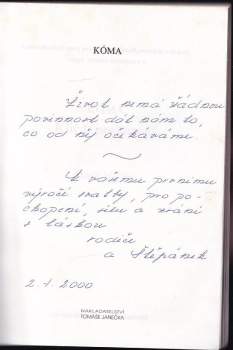 KÓMA
Život nemá žádnou
povinnost dát nám to,
co od něj očekáváme
K vašemu prvnímu
výročí svatby, pro po-
chopení, sílu a zrání
s láskou
rodiče
a Štěpánek
2. 1. 2000
NAKLADATELSTVÍ
TOMÁŠE JANEČKA